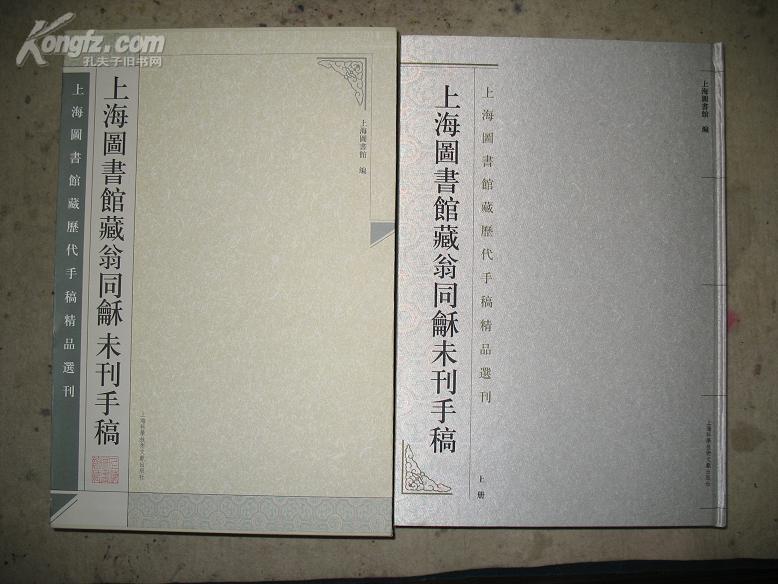 Kongfz.com
孔夫子旧书网
上海圖書館 編
上海圖書館藏翁同龢未刊手稿
上海圖書館藏歷代手稿精品選刊
上海科學技術文獻出版社
上海圖書館 編
上海圖書館藏歷代手稿精品選刊
上海圖書館藏翁同龢未刊手稿
上册
上海科學技術文獻出版社